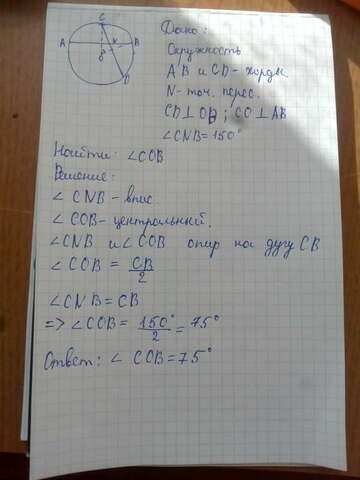 C
A
N
B
O
D
Дано:
Окружность
AB и CD - хорды
N - точ. перес.
CD⊥OB; CO⊥AB
∠CNB = 150°
Найти: ∠COB
Решение:
∠ CNB - впис
∠ COB - центральный.
∠CNB и ∠COB опир на дугу CB
∠ COB = CB/2
∠CNB = CB
=> ∠COB = 150°/2 = 75°
Ответ: ∠ COB = 75°